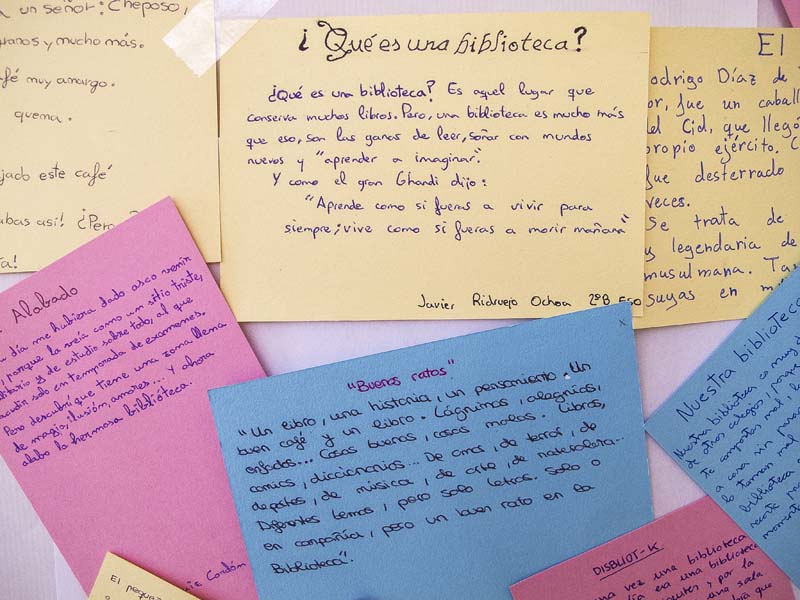 un señor: Cheposo,
anos y mucho más.
fé muy amargo.
quema.
jado este café
abas así! ¿Pero
¿Qué es una biblioteca?
¿Qué es una biblioteca? Es aquel lugar que
conserva muchos libros. Pero, una biblioteca es mucho más
que eso, son las ganas de leer, soñar con mundos
nuevos y "aprender a imaginar".
Y como el gran Ghandi dijo:
"Aprende como si fueras a vivir para
siempre; vive como si fueras a morir mañana"
Javier Ridruejo Ochoa 2ºB Eso
El
odrigo Díaz de
or, fue un caball
del Cid, que llegó
propio ejército. C
fue desterrado
veces.
Se trata de
y legendaria de
musulmana. Ta
suyas en m
Alabado
día me hubiera dado asco venir
, porque la veía como un sitio triste,
litario y de estudio sobre todo, al que
acudir solo en temporada de examenes.
Pero descubrí que tiene una zona llena
de magia, ilusión, amores... Y ahora
alabo la hermosa biblioteca.
Cordón
"Buenos ratos"
"Un libro, una historia, un pensamiento. Un
buen café y un libro. Lágrimas, alegrías,
enfados... Cosas buenas, cosas malas. Libros,
comics, diccionarios... De amor, de terror, de
deportes, de música, de arte, de naturaleza...
Diferentes temas, pero solo letras. Solo o
en compañía, pero un buen rato en la
Biblioteca".
Nuestra biblioteca
Nuestra biblioteca es muy d
de otros colegios, porque
te comportas mal,
a casa sin
lo toman mal
biblioteca
momento
El peque
DISBLIOT-K
una vez una biblioteca
día era una biblioteca
y por la
una sala
que